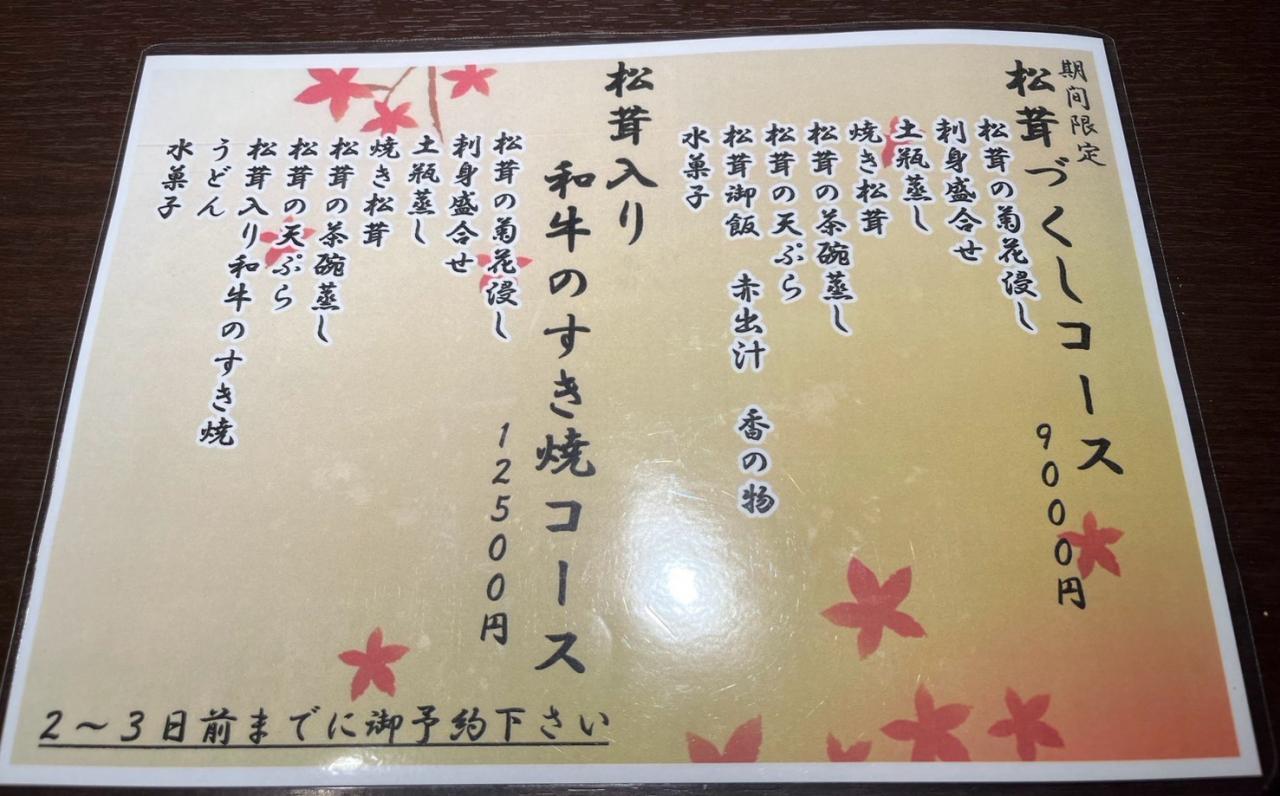 期間限定
松茸づくしコース
9000円
松茸の菊花浸し
刺身盛合せ
土瓶蒸し
焼き松茸
松茸の茶碗蒸し
松茸の天ぷら
松茸御飯　赤出汁　香の物
水菓子
松茸入り
和牛のすき焼コース
12500円
松茸の菊花浸し
刺身盛合せ
土瓶蒸し
焼き松茸
松茸の茶碗蒸し
松茸の天ぷら
松茸入り和牛のすき焼
うどん
水菓子
2～3日前までに御予約下さい